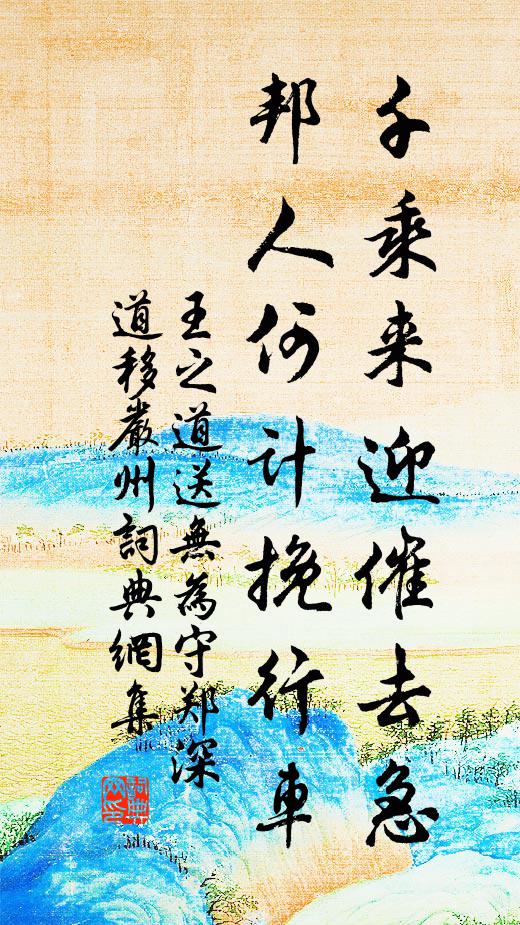 千乘来迎催去急
邦人何计挽行車
王之道送無為守郑深
道移嚴州詞典網集